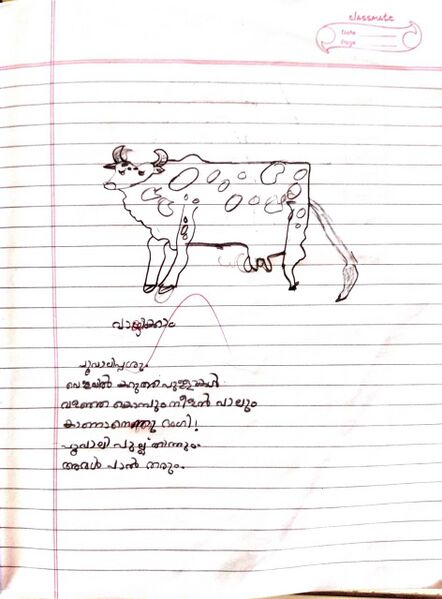 classmate
Date
Page
വായിക്കാം
പൂവാലിപ്പശു
വെള്ളയിൽ കറുത്ത പുള്ളികൾ
വളഞ്ഞ കൊമ്പും നീളൻ വാലും
കാണാനെന്തു ഭംഗി!
പൂവാലി പുല്ല് തിന്നും.
അവൾ പാൽ തരും.